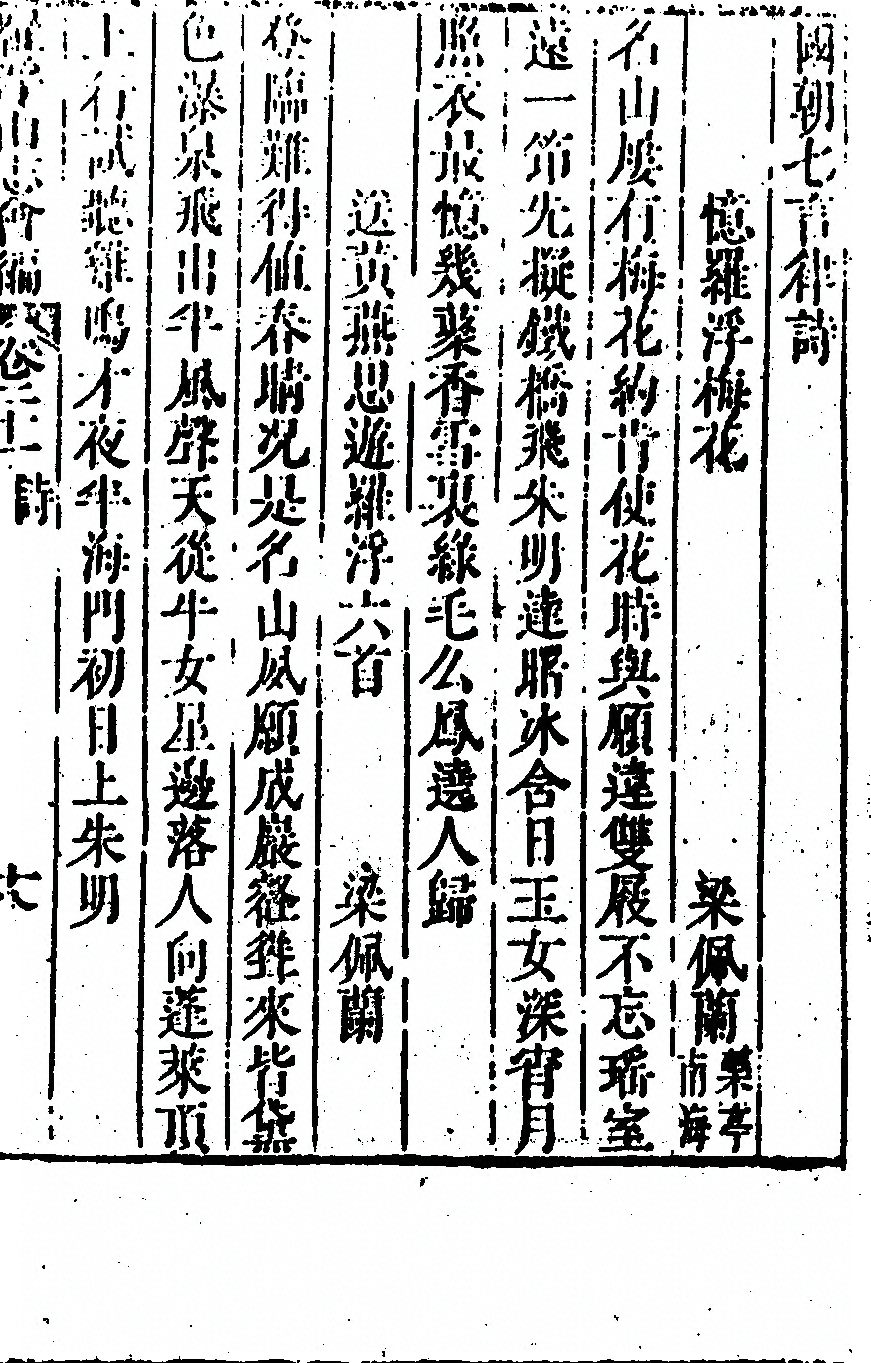 國朝七言律詩
憶羅浮梅花 梁佩蘭 藥亭 南海
名山屢有梅花約肯使花時與願違雙屐不忘瑤室
遠一筇先擬鐵橋飛朱明達曙冰含日玉女深宵月
照衣最憶幾叢香雪裏綠毛么鳳遶人歸
送黃燕思遊羅浮六首 梁佩蘭
登臨難得值春晴况是名山夙願成巖壑來皆黛
色瀑泉飛出半風聲天從牛女星邉落人向蓬萊頂
上行試聽雞鳴才夜半海門初日上朱明
羅浮山志會編 卷二十一 詩